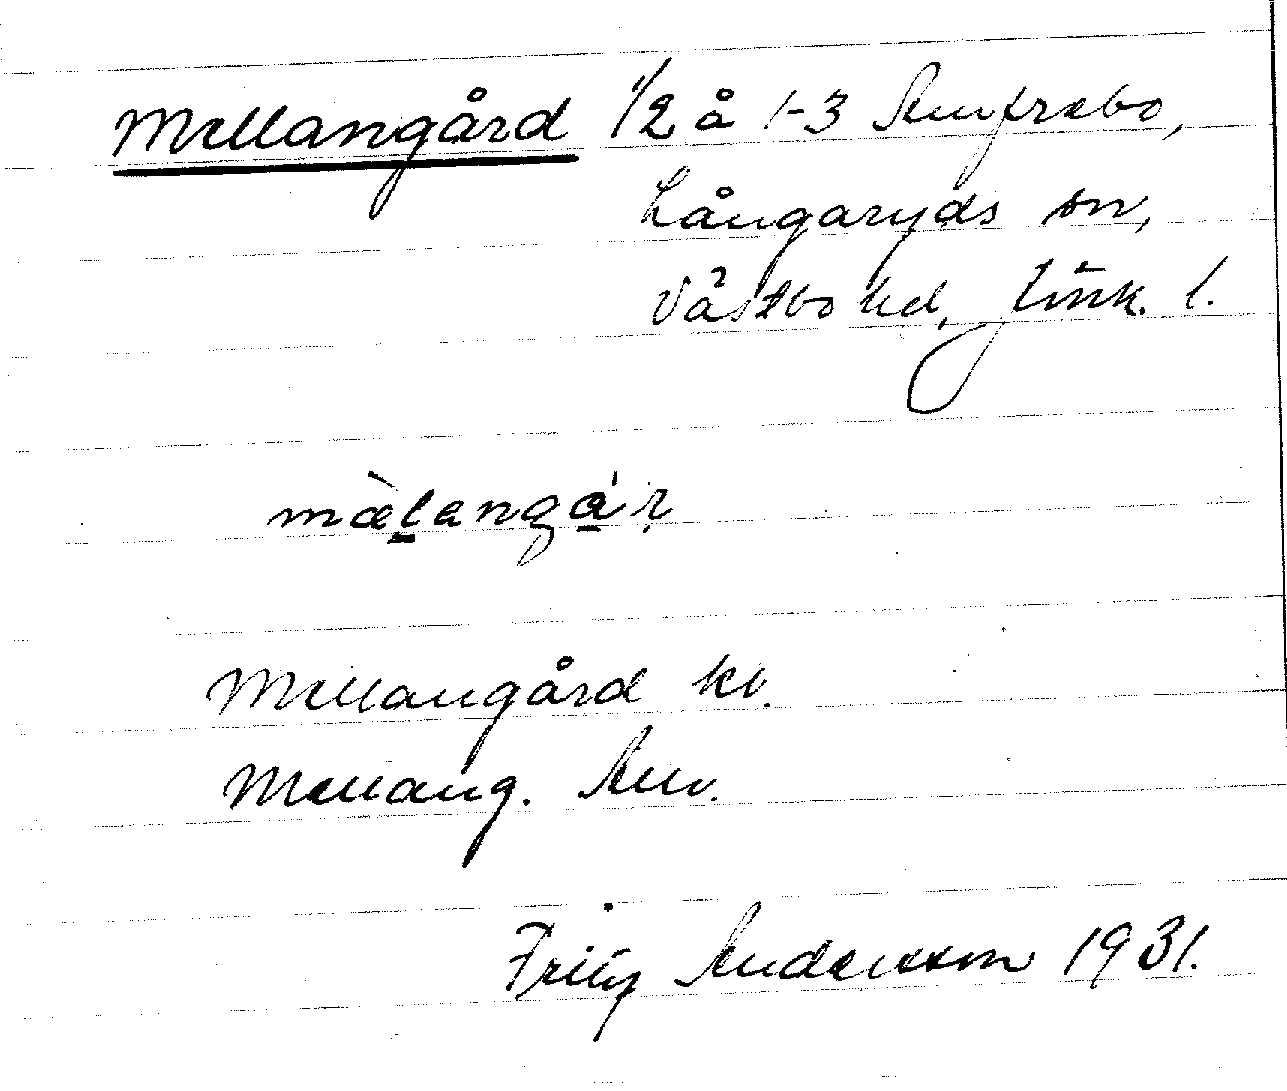 Mellangård 1/2 å 1-3 Amfrebo,
Långaryds sn,
Västbo hd, Jönk. l.
mæ̀langár
Mellangård kb.
Mellang.
Fritz Andersson 1931.